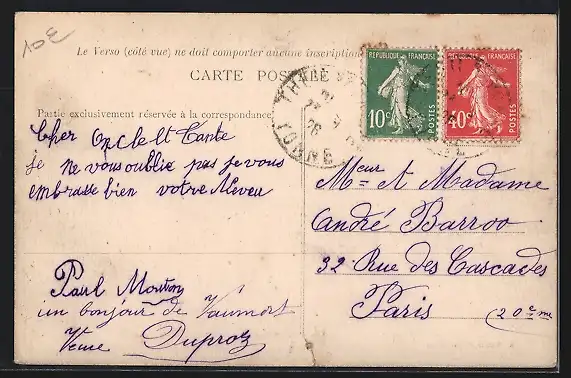 10 €
Le Verso (côté vue) ne doit comporter aucune inscription
CARTE POSTALE
Partie exclusivement réservée à la correspondance
REPUBLIQUE FRANÇAISE
10c
POSTES
REPUBLIQUE FRANÇAISE
40c
POSTES
YONNE
Cher Oncle et Tante
je ne vous oublie pas je vous
embrasse bien votre Neveu
Paul Mouton
un bonjour de Vaumort
Veuve Duproz
Meur et Madame
André Barroo
32 Rue des Cascades
Paris
(20eme